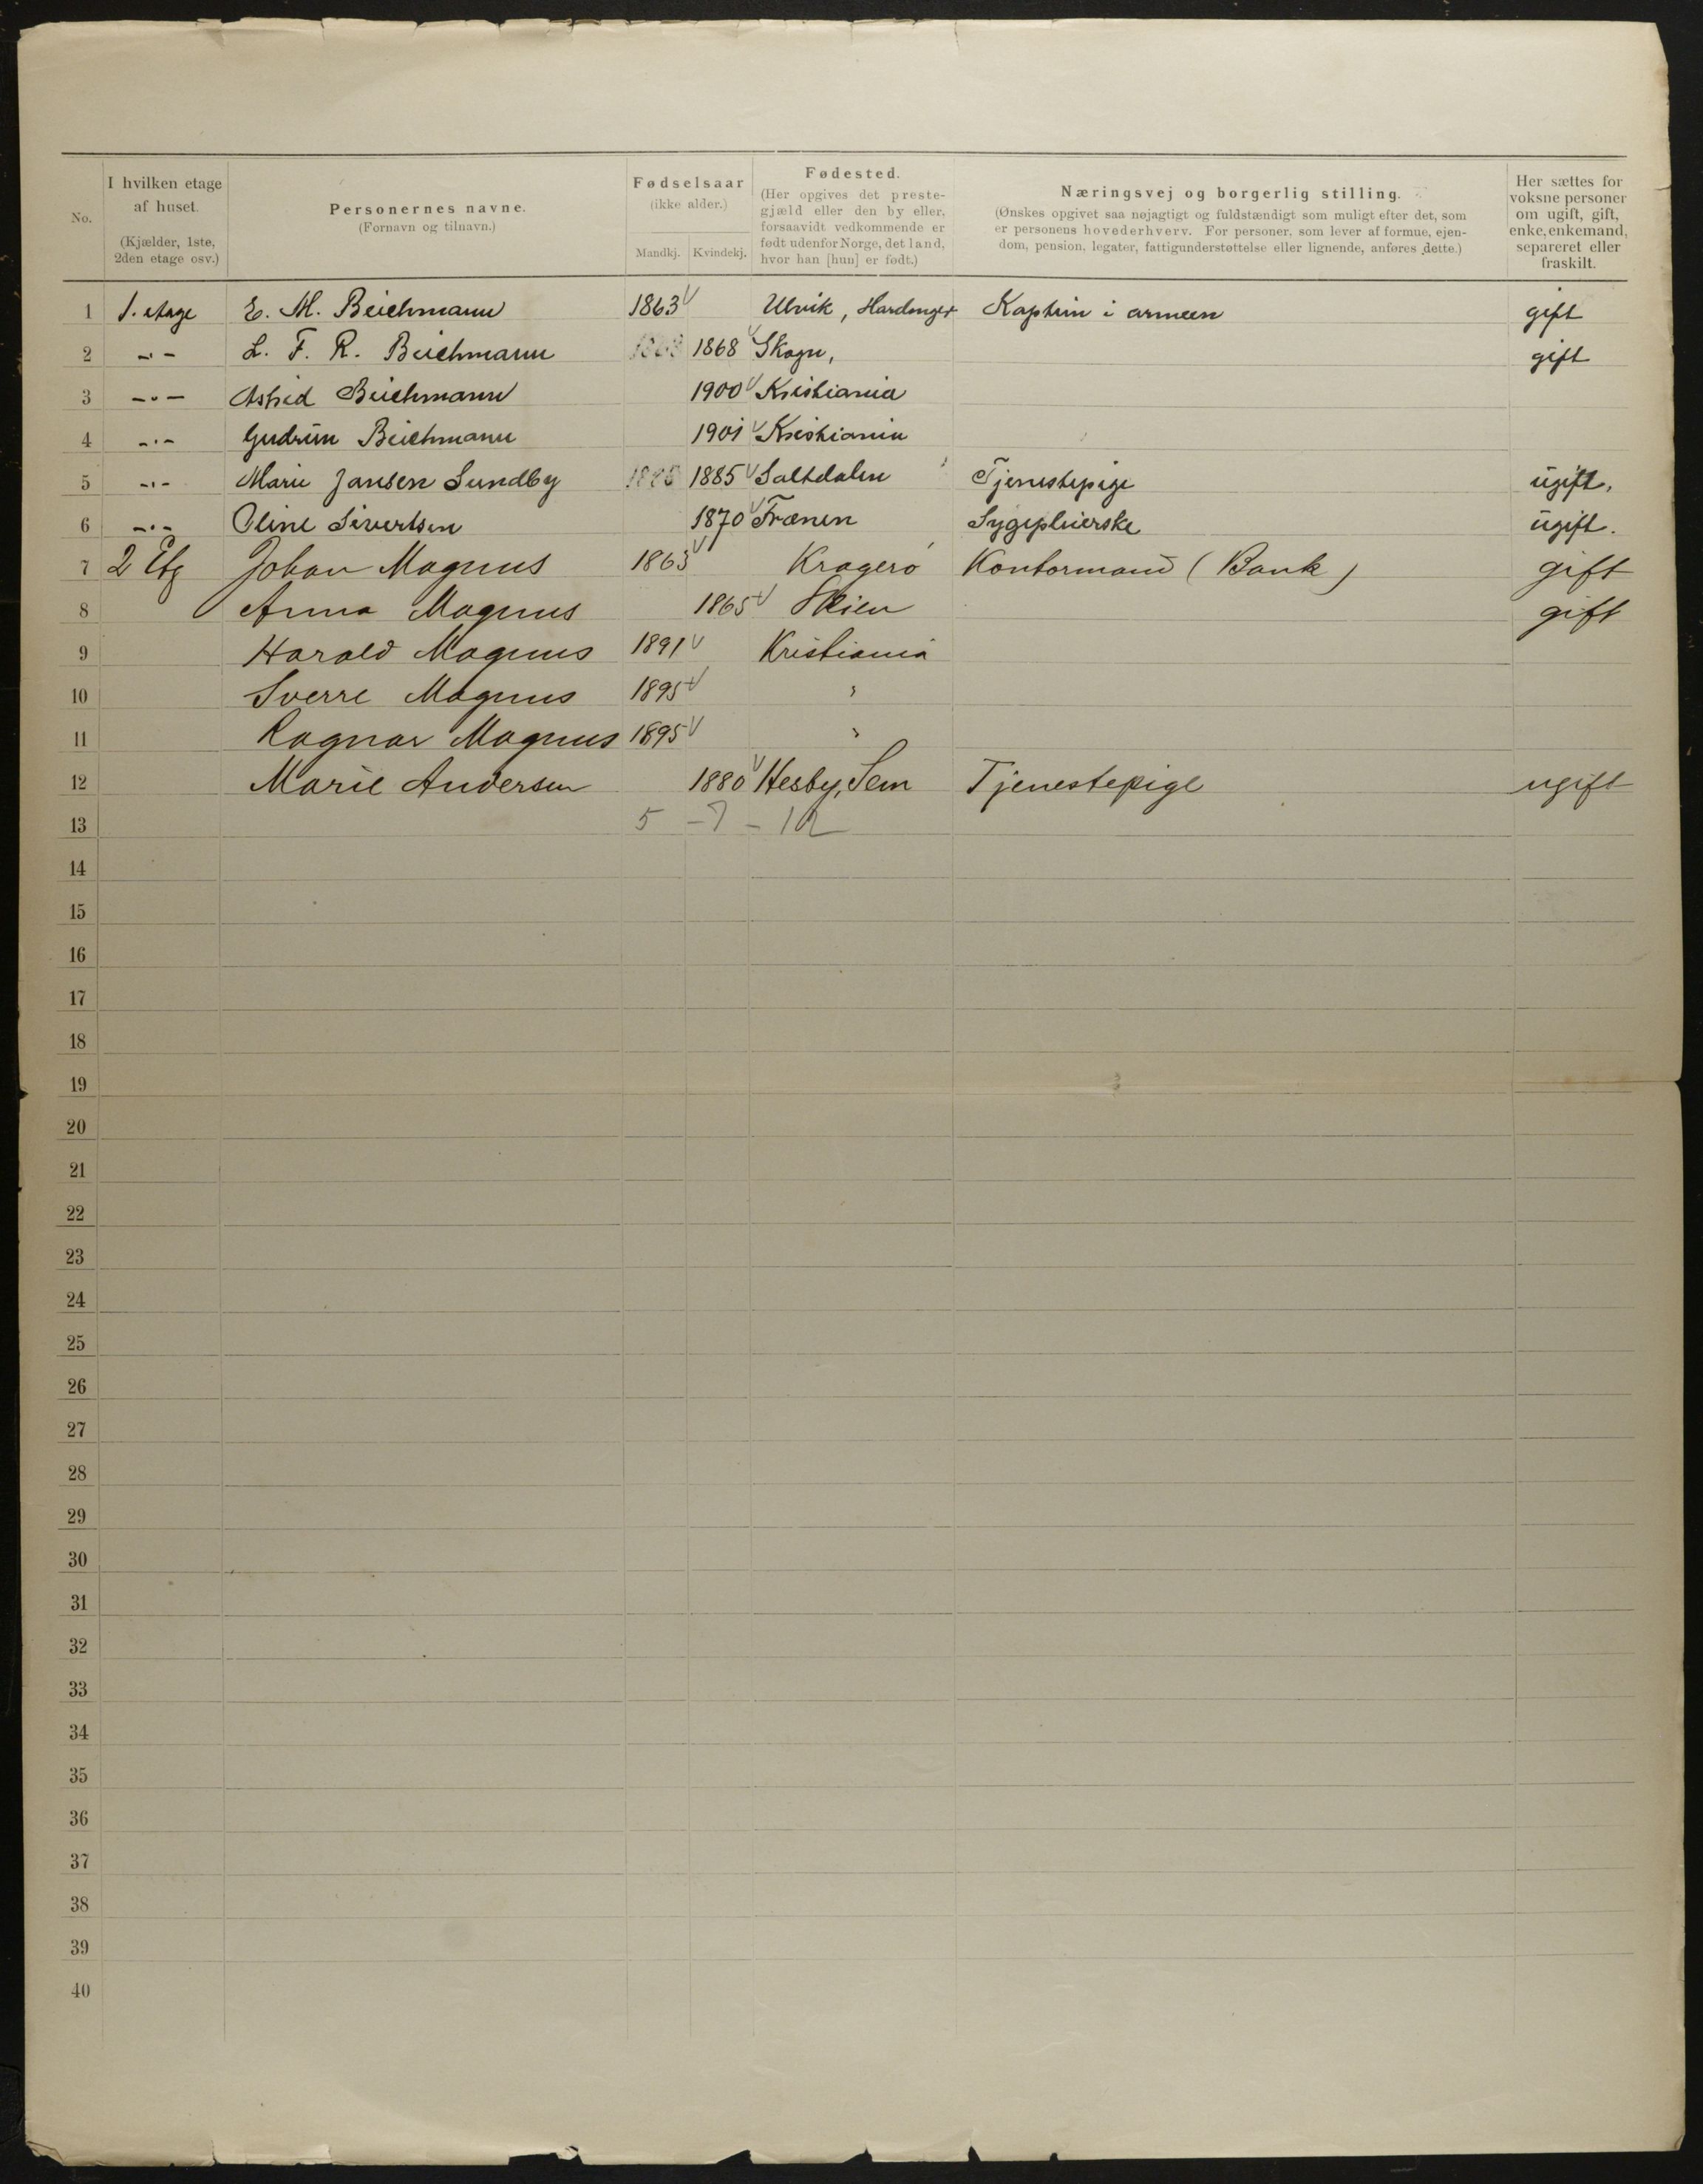 No.
I hvilken etage af huset.
(Kjælder, 1ste, 2den etage osv.)
Personernes navne.
(Fornavn og tilnavn.)
Fødselsaar
(ikke alder.)
Mandkj. Kvindekj.
Fødested.
(Her opgives det preste-
gjæld eller den by eller,
forsaavidt vedkommende er
født udenfor Norge, det land,
hvor han [hun] er født.)
Næringsvej og borgerlig stilling.
(Ønskes opgivet saa nøjagtigt og fuldstændigt som muligt efter det, som
er personens hovederhverv. For personer, som lever af formue, ejen-
dom, pension, legater, fattigunderstøttelse eller lignende, anføres dette.)
Her sættes for
voksne personer
om ugift, gift,
enke, enkemand,
separeret eller
fraskilt.
1 1. etage E. M. Beichmann 1863 Ulvik, Hardanger Kaptein i armeen gift
2 -"- L. F. R. Beichmann 1868 Skogn, gift
3 -"- Astrid Beichmann 1900 Kristiania
4 -"- Gudrun Beichmann 1901 Kristiania
5 -"- Marie Jansen Sundby 1885 1885 Saltdalen Tjenestepige ugift.
6 -"- Oline Sivertsen 1870 Frænen Sygepleierske ugift.
7 2 Etg Johan Magnus 1863 Kragerø Kontormand (Bank) gift
8 Anna Magnus 1865 Skien gift
9 Harald Magnus 1891 Kristiania
10 Sverre Magnus 1895 "
11 Ragnar Magnus 1895 "
12 Marie Andersen 1880 Hesby, Sem Tjenestepige ugift
13 5 - 7 - 12
14
15
16
17
18
19
20
21
22
23
24
25
26
27
28
29
30
31
32
33
34
35
36
37
38
39
40